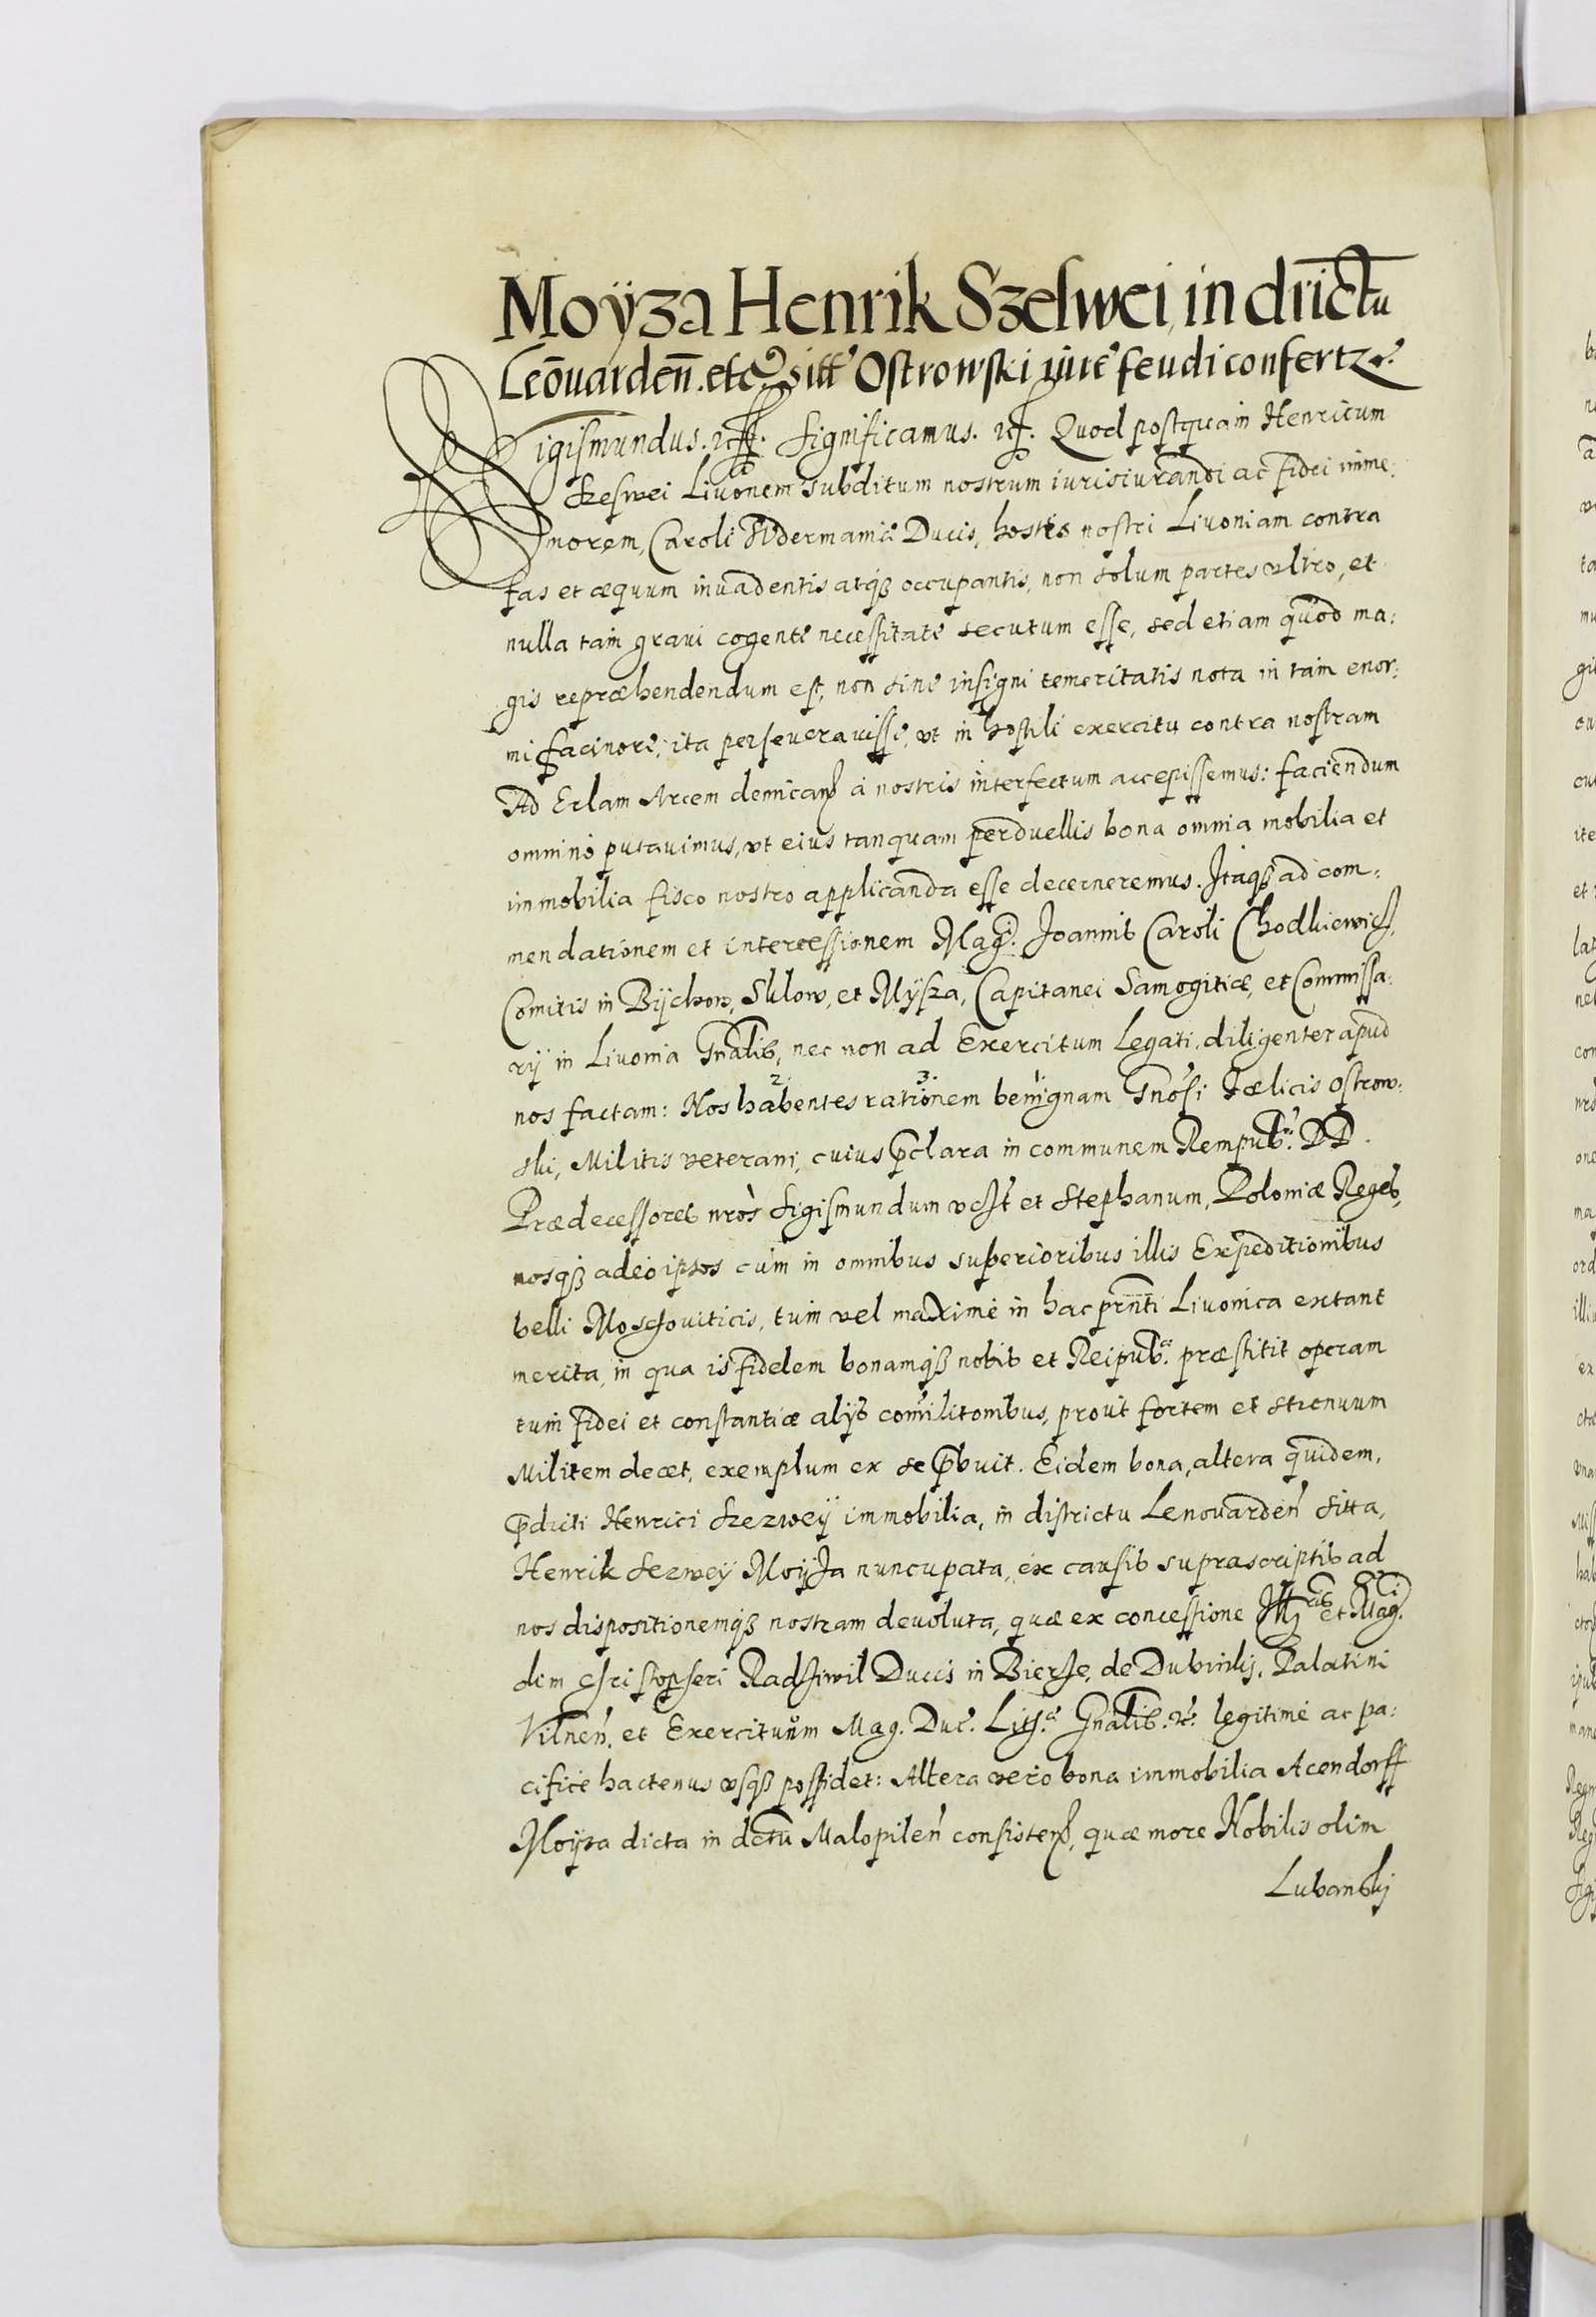 Moÿza Henrik Szelwei, in dričtu
Leōuarden̄. etc. sitt' Ostrowski iure feudi confertr.
Sigismundus. etc. Significamus. etc. Quod postquam Henricum
Szeswei Liuonem subditum nostrum iurisiurandi ac fidei imme-
morem, Caroli Sudermaniæ Ducis, hostis nostri Liuoniam contra
fas et æquum inuadentis atqȝ occupantis, non solum partes ultro, et
nulla tam graui cogente necessitate secutum esse, sed etiam quod ma:
gis repræhendendum est, non sine insigni temeritatis nota in tam enor:
mi facinore, ita perseuerauisse, vt in hostili exercitu contra nostram
Ad Erlam Arcem demicans à nostris interfectum accepissemus: faciendum
omninò putauimus, vt eius tanquam perduellis bona omnia mobilia et
immobilia fisco nostro applicanda esse decerneremus. Itaqȝ ad com:
mendationem et intercessionem Magci. Joannis Caroli Chodkiewicz,
Comitis in Bychow, Sklow, et Mysza, Capitanei Samogitiæ, et Commissa:
rij in Liuonia Gnalis, nec non ad Exercitum Legati, diligenter apud
2. 3. 1
nos factam: Nos habentes rationem benignam Gnosi Fœlicis Ostrow:
ski, Militis veterani, cuius p̄clara in communem Rempub. DD.
Prædecessores nros Sigismundum Aust et Stephanum, Poloniæ Reges,
nosqȝ adeò ipsos cùm in omnibus superioribus illis Expeditionibus
belli Moschouiticis, tum vel maximè in hac prnti Liuonica extant
merita, in qua is fidelem bonamqȝ nobis et Reipub. præstitit operam
tum fidei et constantiæ alijs com̄ilitonibus, prout fortem et strenuum
Militem decet, exemplum ex se p̄buit. Eidem bona, altera quidem,
p̄dicti Henrici Szezweÿ immobilia, in districtu Lenouarden̄ sitta,
Henrik Sezweÿ Moyza nuncupata, ex causis suprascriptis ad
nos dispositionemqȝ nostram deuoluta, quæ ex concessione Illris et Magci.
olim Christopheri Radziwil Ducis in Bierze, de Dubinki, Palatini
Vilnen̄. et Exercituum Mag. Duc. Lith. Gnalis. etc. legitimè ac pa:
cificè hactenus vsqȝ possidet: Altera verò bona immobilia Acendorff
Moyza dicta in dctu Malopilen̄ consistens, quæ more Nobilis olim
Lubanskij